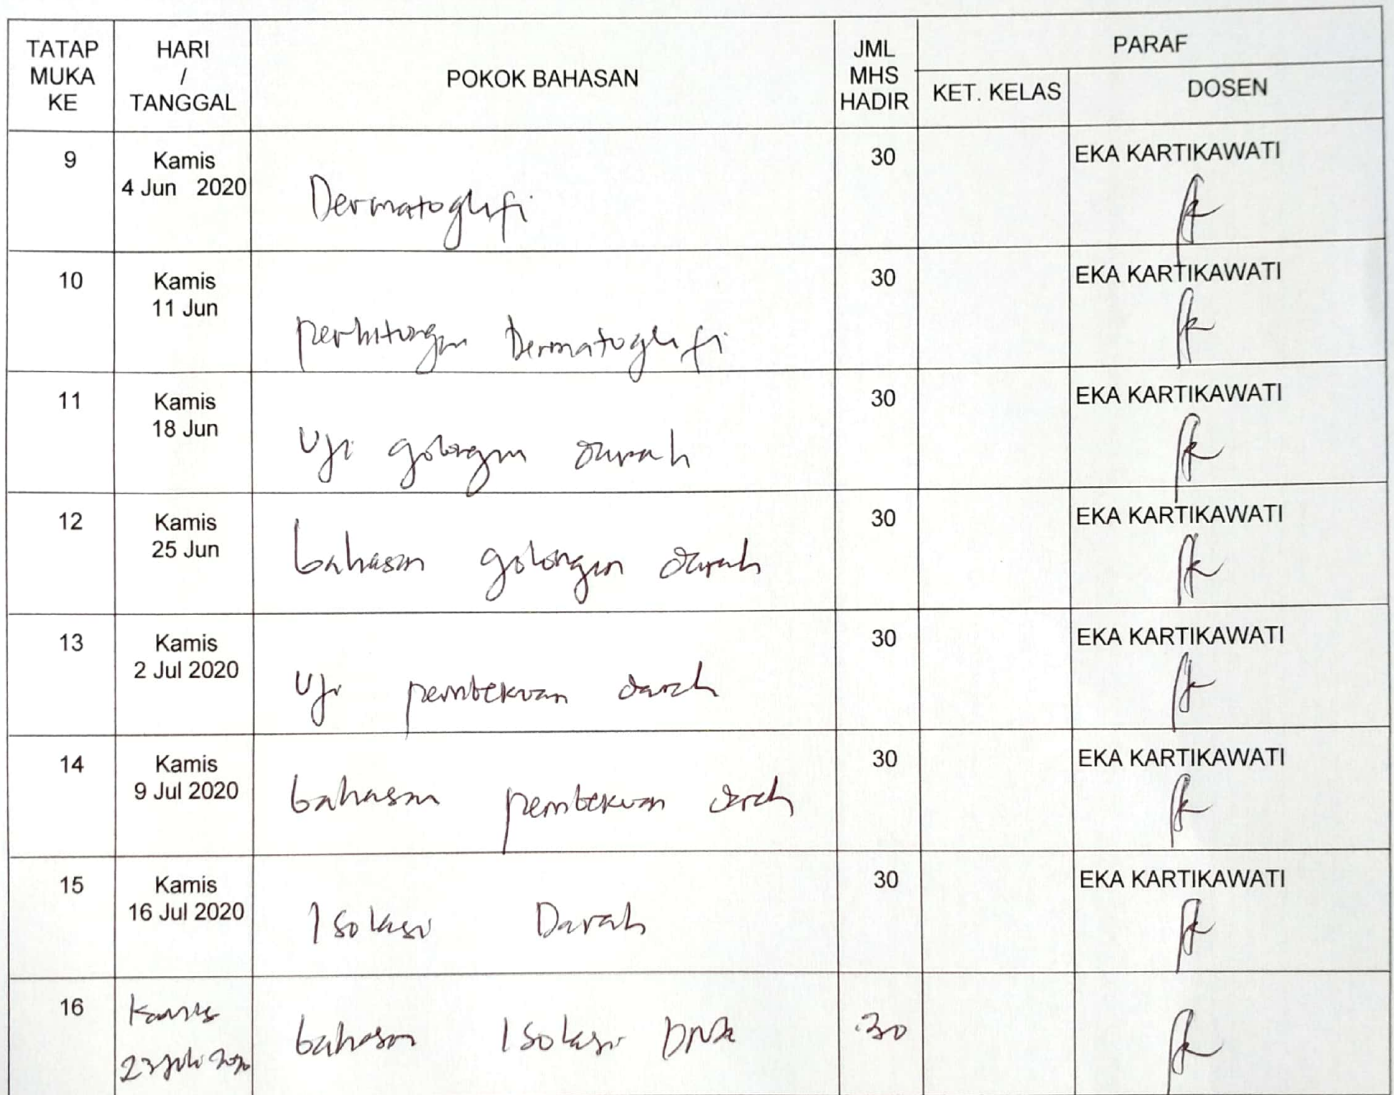 TATAP MUKA KE
HARI / TANGGAL
POKOK BAHASAN
JML MHS HADIR
PARAF
KET. KELAS
DOSEN
9
Kamis
4 Jun 2020
Dermatoglifi
30
EKA KARTIKAWATI
10
Kamis
11 Jun
perhitungan Dermatoglifi
30
EKA KARTIKAWATI
11
Kamis
18 Jun
Uji golongan darah
30
EKA KARTIKAWATI
12
Kamis
25 Jun
bahasan golongan darah
30
EKA KARTIKAWATI
13
Kamis
2 Jul 2020
Uji pembekuan darah
30
EKA KARTIKAWATI
14
Kamis
9 Jul 2020
bahasan pembekuan darah
30
EKA KARTIKAWATI
15
Kamis
16 Jul 2020
Isolasi Darah
30
EKA KARTIKAWATI
16
Kamis
23 Juli 2020
bahasan Isolasi DNA
30